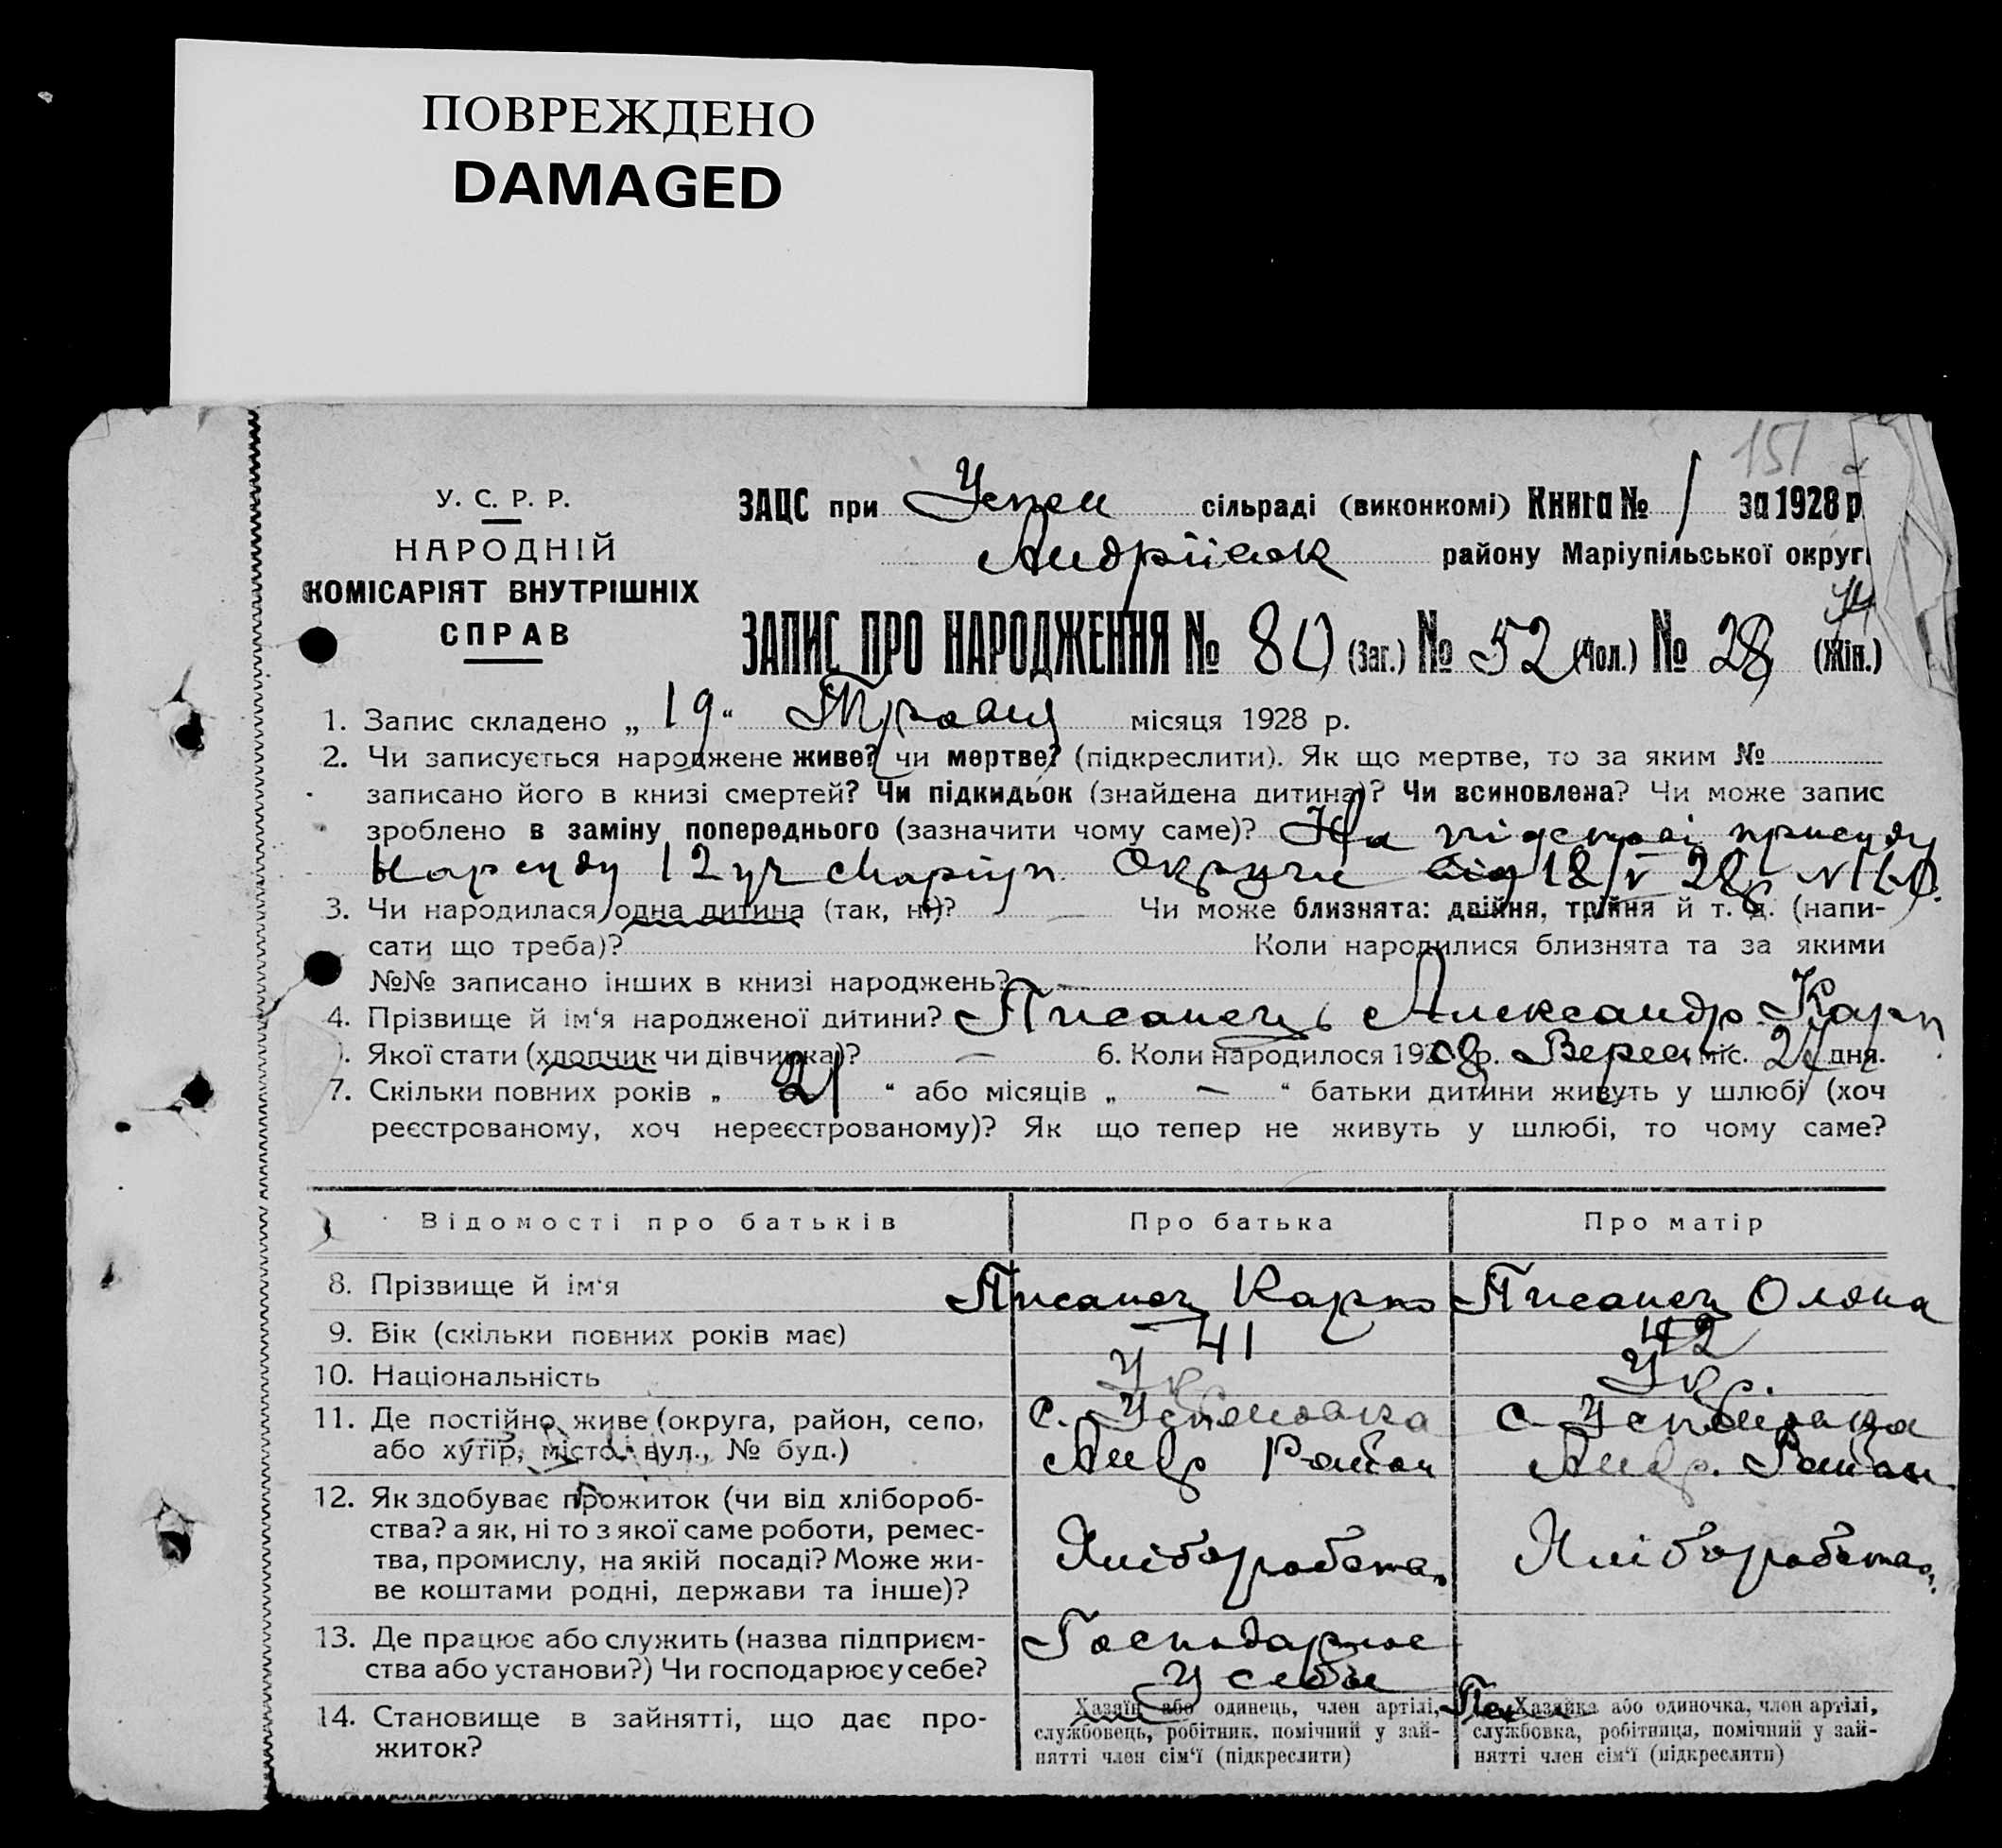 ПОВРЕЖДЕНО
DAMAGED
151
У. С. Р. Р.
НАРОДНІЙ
КОМІСАРІЯТ ВНУТРІШНІХ
СПРАВ
ЗАЦС при Успен сільраді (виконкомі) Книга № 1 за 1928 р
Андріївск району Маріупільської округи
ЗАПИС ПРО НАРОДЖЕННЯ № 80 (Заг.) № 52 (Чол.) № 28 (Жін.)
1. Запис складено „ 19 “ Травня місяця 1928 р.
2. Чи записується народжене живе? чи мертве? (підкреслити). Як що мертве, то за яким №
записано його в книзі смертей? Чи підкидьок (знайдена дитина)? Чи всиновлена? Чи може запис
зроблено в заміну попереднього (зазначити чому саме)? На підставі присуду
Нарсуду 12 уч Маріуп. Округи від 18/V 28р.
3. Чи народилася одна дитина (так, ні)? — Чи може близнята: двійня, трійня й т. д. (напи-
сати що треба)? Коли народилися близнята та за якими
№№ записано інших в книзі народжень? —
4. Прізвище й ім‘я народженої дитини? Писанець Александр Карп
. Якої стати (хлопчик чи дівчинка)? — 6. Коли народилося 1908 р. Верес, міс. 24 дня.
7. Скільки повних років „ 21 “ або місяців „ — “ батьки дитини живуть у шлюбі (хоч
реєстрованому, хоч нереєстрованому)? Як що тепер не живуть у шлюбі, то чому саме?
Відомості про батьків Про батька Про матір
8. Прізвище й ім‘я Писанец Карпо Писанец Олена
9. Вік (скільки повних років має) 41 42
10. Національність Укр Укр.
11. Де постійно живе (округа, район, село, с. Успеновка с. Успеновка
або хутір, місто, вул., № буд.) Андр Район Андр. Район
12. Як здобуває прожиток (чи від хлібороб-
ства? а як, ні то з якої саме роботи, ремес-
тва, промислу, на якій посаді? Може жи- Хліборобства Хліборобства
ве коштами родні, держави та інше)?
13. Де працює або служить (назва підприєм- Господарює
ства або установи?) Чи господарює у себе? у себе
14. Становище в зайнятті, що дає про-
житок?
Хазяїн або одинець, член артілі,
службовець, робітник, помічний у зай-
нятті член сім‘ї (підкреслити)
Хазяйка або одиночка, член артілі,
службовка, робітниця, помічний у зай-
нятті член сім‘ї (підкреслити)